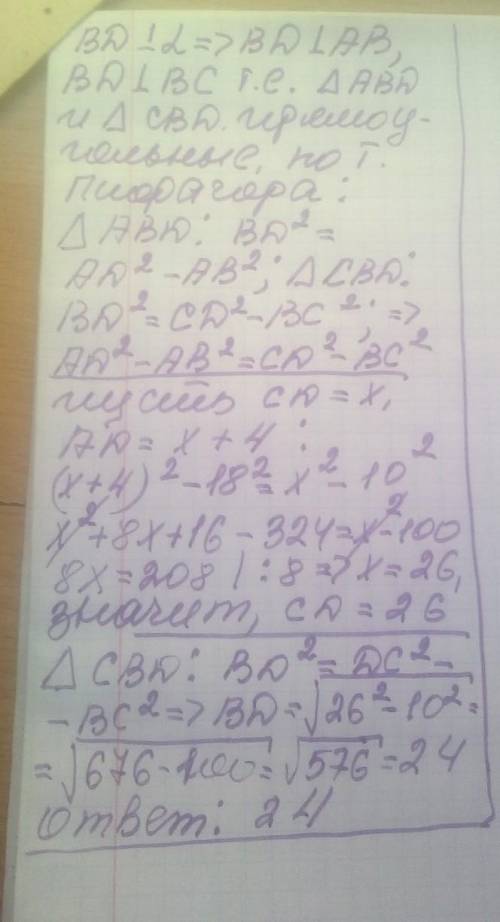 BD⊥α=>BD⊥AB,
BD⊥BC т.е. ΔABD
и Δ CBD. прямоу-
гольные, по т.
Пифагора:
Δ ABD: BD²=
AD²-AB²; ΔCBD:
BD²=CD²-BC²; =>
AD²-AB²=CD²-BC²
пусть CD=x,
AD=x+4:
(x+4)²-18²=x²-10²
x²+8x+16-324=x²-100
8x=208 | :8 => x=26,
значит, CD=26
Δ CBD: BD²=DC²-
-BC²=>BD=√26²-10²=
=√676-100=√576=24
Ответ: 24